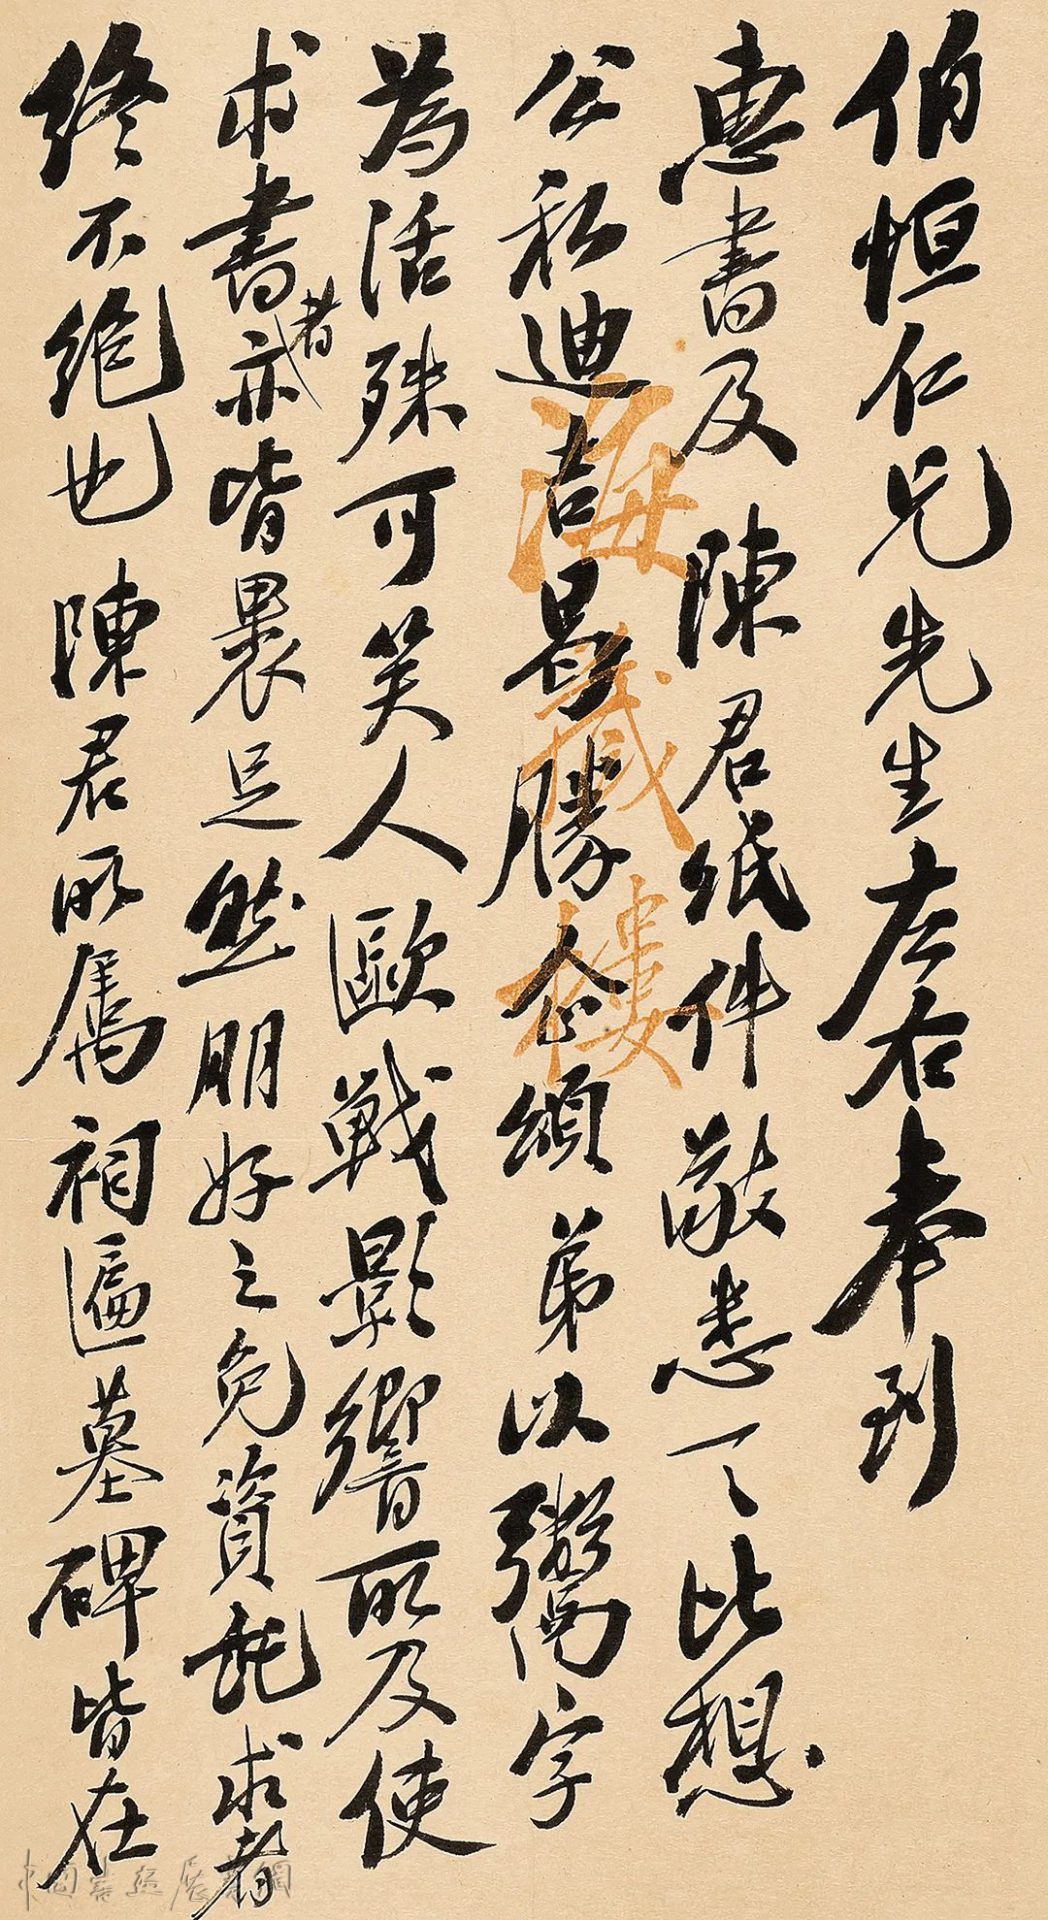 伯恒仁兄先生左右奉到
惠書及 陳君紙件敬悉一一比想
公私迪吉曷勝企頌弟以鬻字
為活殊可笑人歐戰影響所及使
求書者亦皆裹足然朋好之免資託求者
終不絕也 陳君所屬祠匾墓碑皆在
海藏樓